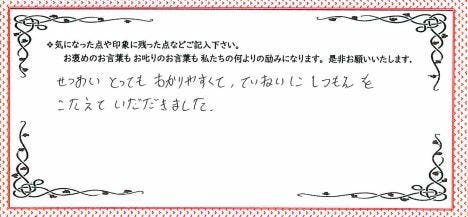 ※気になった点や印象に残った点などご記入下さい。
お褒めのお言葉も お叱りのお言葉も 私たちの何よりの励みになります。是非お願いいたします。
せつめい とっても わかりやすくて、ていねいに しつもん を
こたえて いただきました。